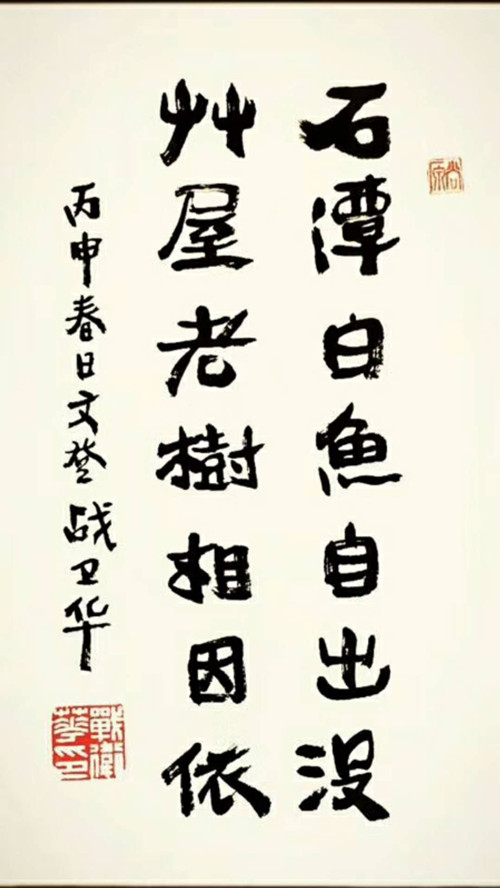 石潭白魚自出没
艸屋老樹相因依
丙申春日文登战卫华
戰衛華印